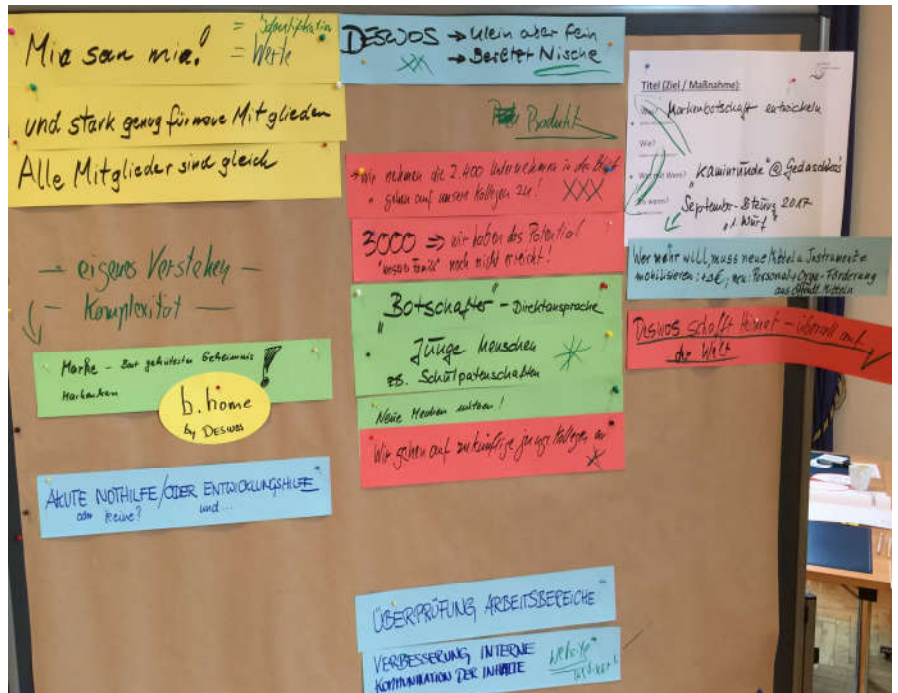 Mia san mia!
= Identifikation
= Werte
und stark genug für neue Mitglieder
Alle Mitglieder sind gleich
— eigenes Verstehen —
— Komplexität —
Marke – Best gehütetes Geheimnis !
Markenkern
b.home
by DESWOS
AKUTE NOTHILFE/ODER ENTWICKLUNGSHILFE
oder keine? und...
DESWOS → klein aber fein
→ Besetzt Nische
XX
Produkt
→ Wir nehmen die 2.400 Unternehmen in die
" gehen auf unsere Kollegen zu! XXX
3000 ⇒ wir haben das Potential
"unsere Familie" noch nicht erreicht!
"Botschafter" – Direktansprache
• Junge Menschen
zB. Schulpatenschaften
Neue Medien nutzen!
Wir gehen auf zukünftige junge Kollegen zu
ÜBERPRÜFUNG ARBEITSBEREICHE
VERBESSERUNG INTERNE
KOMMUNIKATION DER INHALTE
Website
Titel (Ziel / Maßnahme):
Was? Markenbotschaft entwickeln
Wie?
Wer mit Wem? "Kaminrunde" @
Bis wann? September-Sitzung 2017
"1. Wurf"
Wer mehr will, muss neue Mittel u. Instrumente
mobilisieren: neu: Personal- + Orga-Förderung
aus öffentl. Mitteln
DESWOS schafft Heimat – überall auf
der Welt